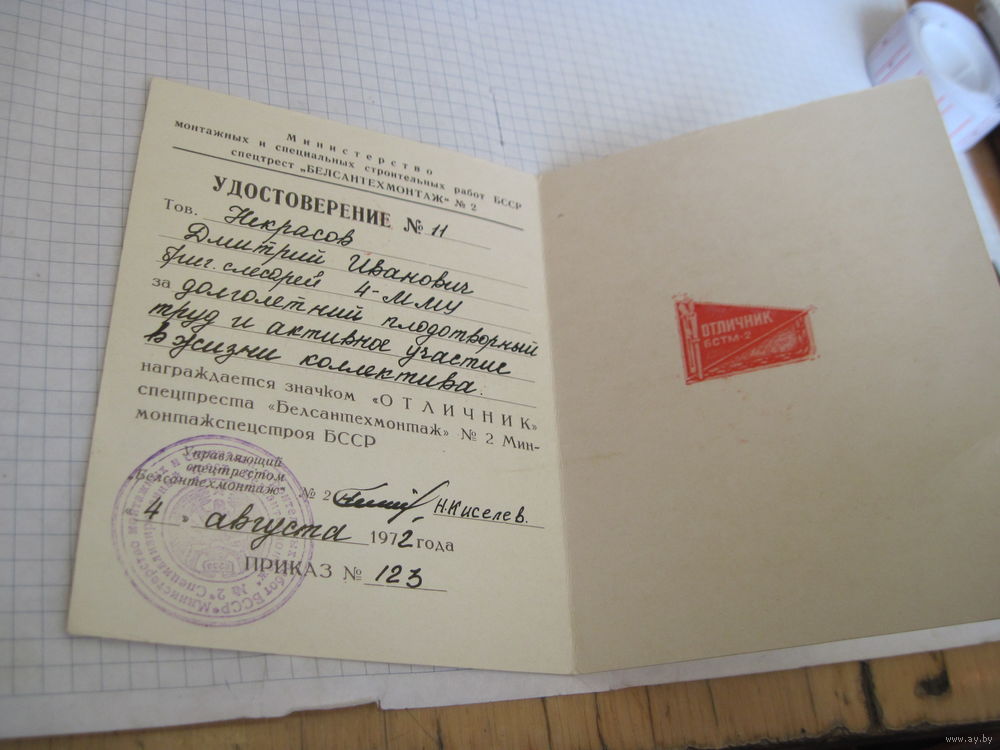 Министерство
монтажных и специальных строительных работ БССР
спецтрест „БЕЛСАНТЕХМОНТАЖ“ № 2
УДОСТОВЕРЕНИЕ № 11
Тов. Некрасов
Дмитрий Иванович
бриг. слесарей 4-ММУ
за долголетний плодотворный
труд и активное участие
в жизни коллектива.
награждается значком «ОТЛИЧНИК»
спецтреста «Белсантехмонтаж» № 2 Мин-
монтажспецстроя БССР
Управляющий
спецтрестом
„Белсантехмонтаж“ № 2 Н. Киселев.
4 » августа 1972 года
ПРИКАЗ № 123
ОТЛИЧНИК
БСТМ-2
www.ay.by